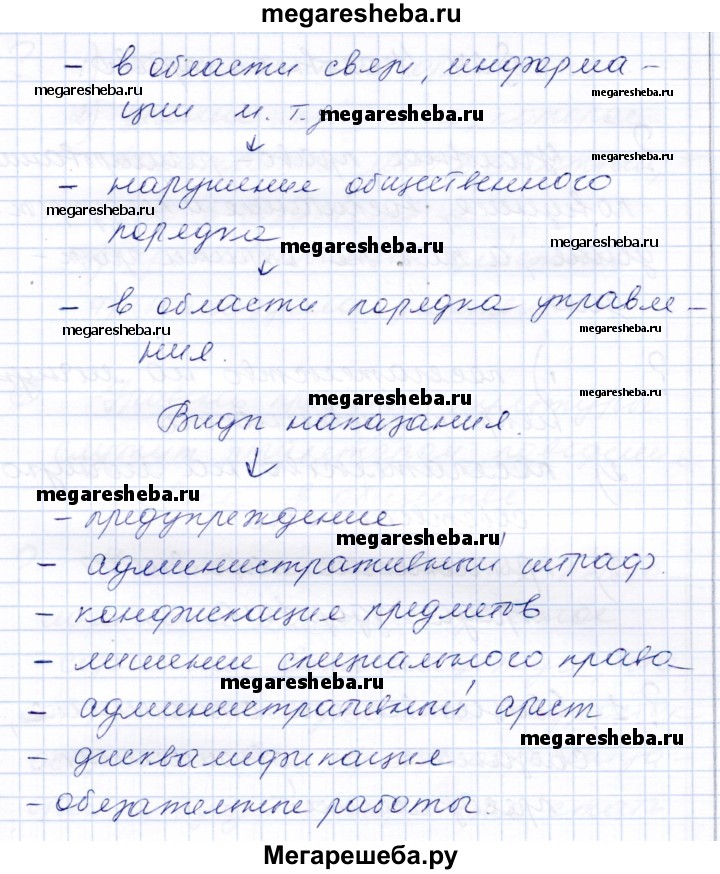 megaresheba.ru
- в области связи, информа-
megaresheba.ru
megaresheba.ru
ции и т.д
megaresheba.ru
megaresheba.ru
- нарушение общественного
megaresheba.ru
порядка
megaresheba.ru
megaresheba.ru
- в области порядка управле-
megaresheba.ru
megaresheba.ru
ния.
megaresheba.ru
megaresheba.ru
Виды наказания.
megaresheba.ru
- предупреждение
megaresheba.ru
- административный штраф.
- конфискация предметов
- лишение специального права
megaresheba.ru
- административный арест
megaresheba.ru
- дисквалификация
- обязательные работы.
Мегарешеба.ру